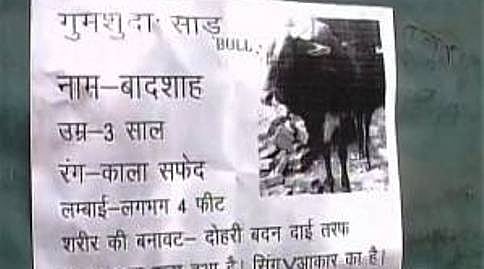 गुमशुदा साड
BULL
नाम-बादशाह
उम्र-3 साल
रंग-काला सफेद
लम्बाई-लगभग 4 फीट
शरीर की बनावट- दोहरी बदन दाई तरफ
हुआ है। सिंग V आकार का है।